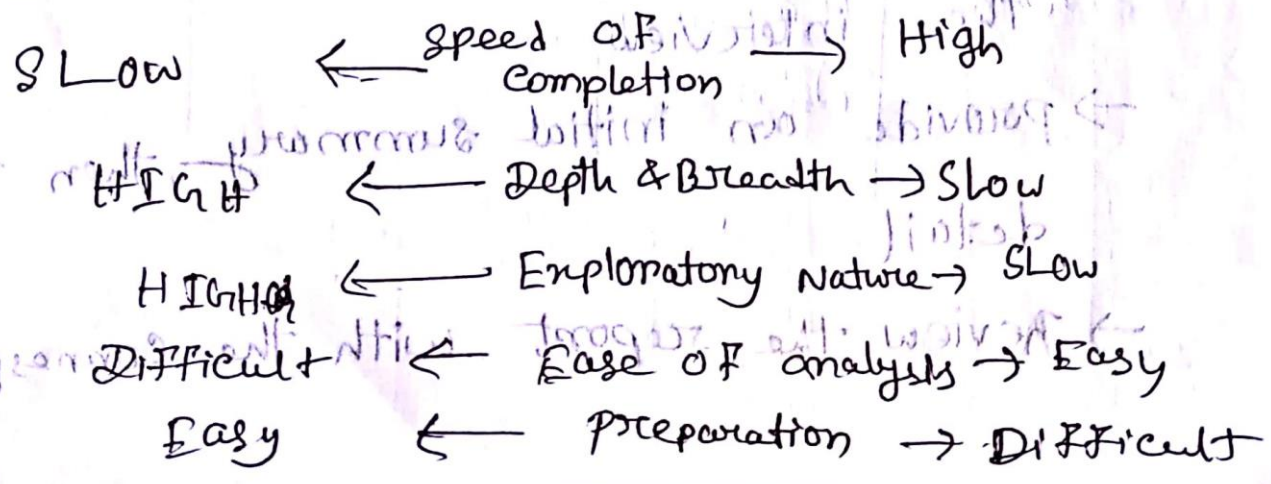 SLOW ← Speed OF Completion → High
HIGH ← Depth & Breadth → Slow
HIGH ← Exploratory Nature → SLOW
Difficult ← Ease OF analysis → Easy
Easy ← Preparation → Difficult